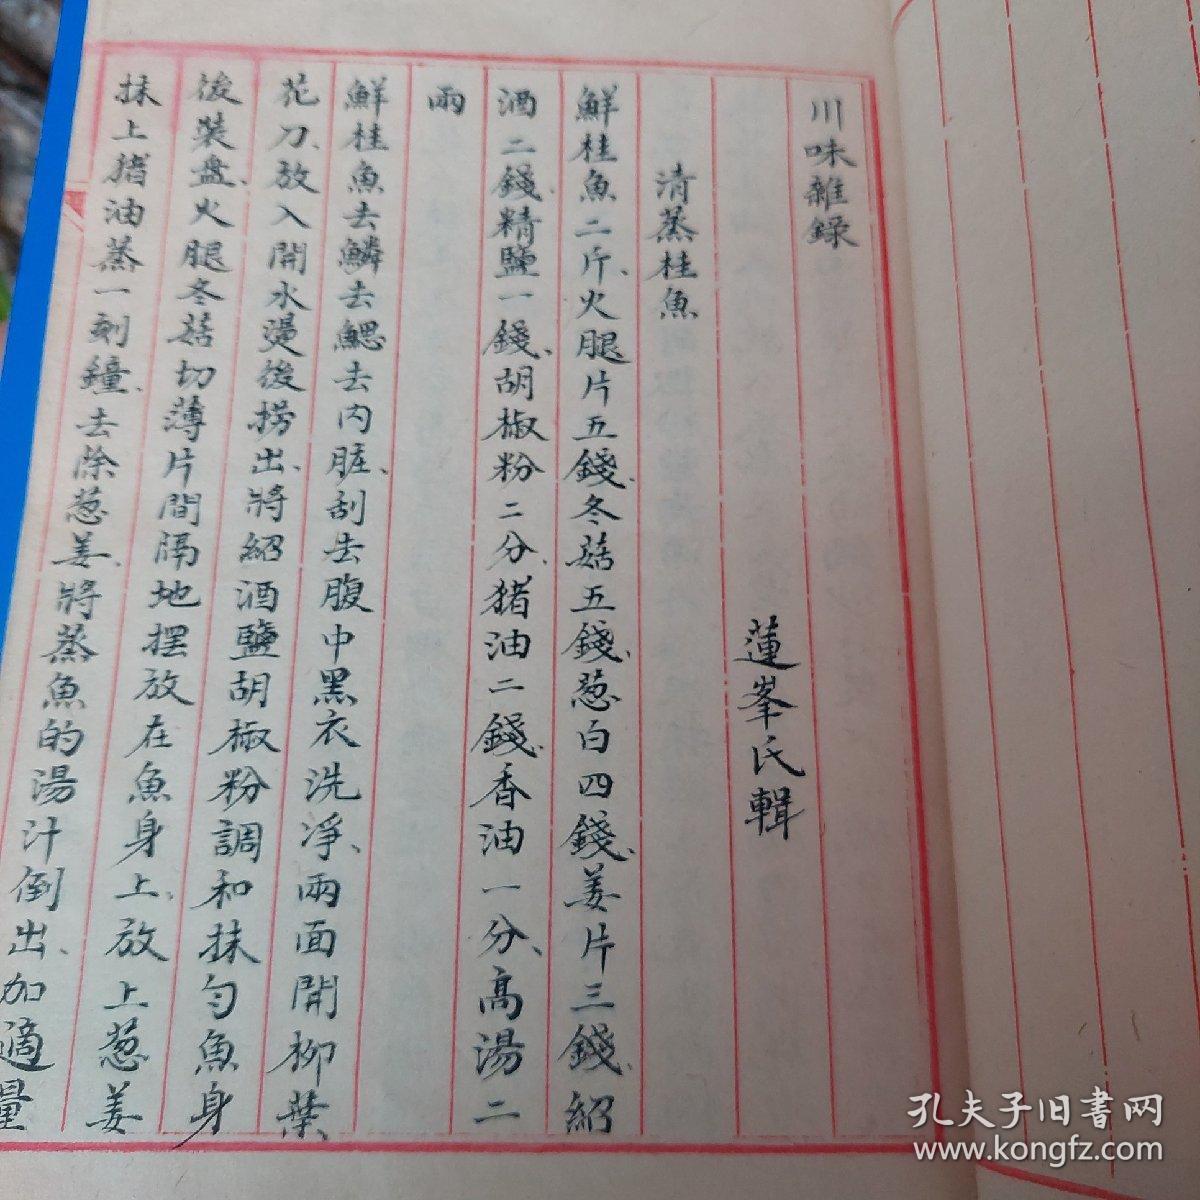 川味雜錄
蓮峯氏輯
清蒸桂魚
鮮桂魚二斤、火腿片五錢、冬菇五錢、葱白四錢、姜片三錢、紹
酒二錢、精鹽一錢、胡椒粉二分、猪油二錢、香油一分、高湯二
兩
鮮桂魚去鱗去鰓去内脏、刮去腹中黑衣洗凈、兩面開柳葉
花刀、放入開水燙後撈出、將紹酒鹽胡椒粉調和抹勻魚身
後裝盘、火腿冬菇切薄片間隔地摆放在魚身上、放上葱姜
抹上猪油蒸一刻鐘、去除葱姜、將蒸魚的湯汁倒出、加適量
孔夫子旧书网
www.kongfz.com